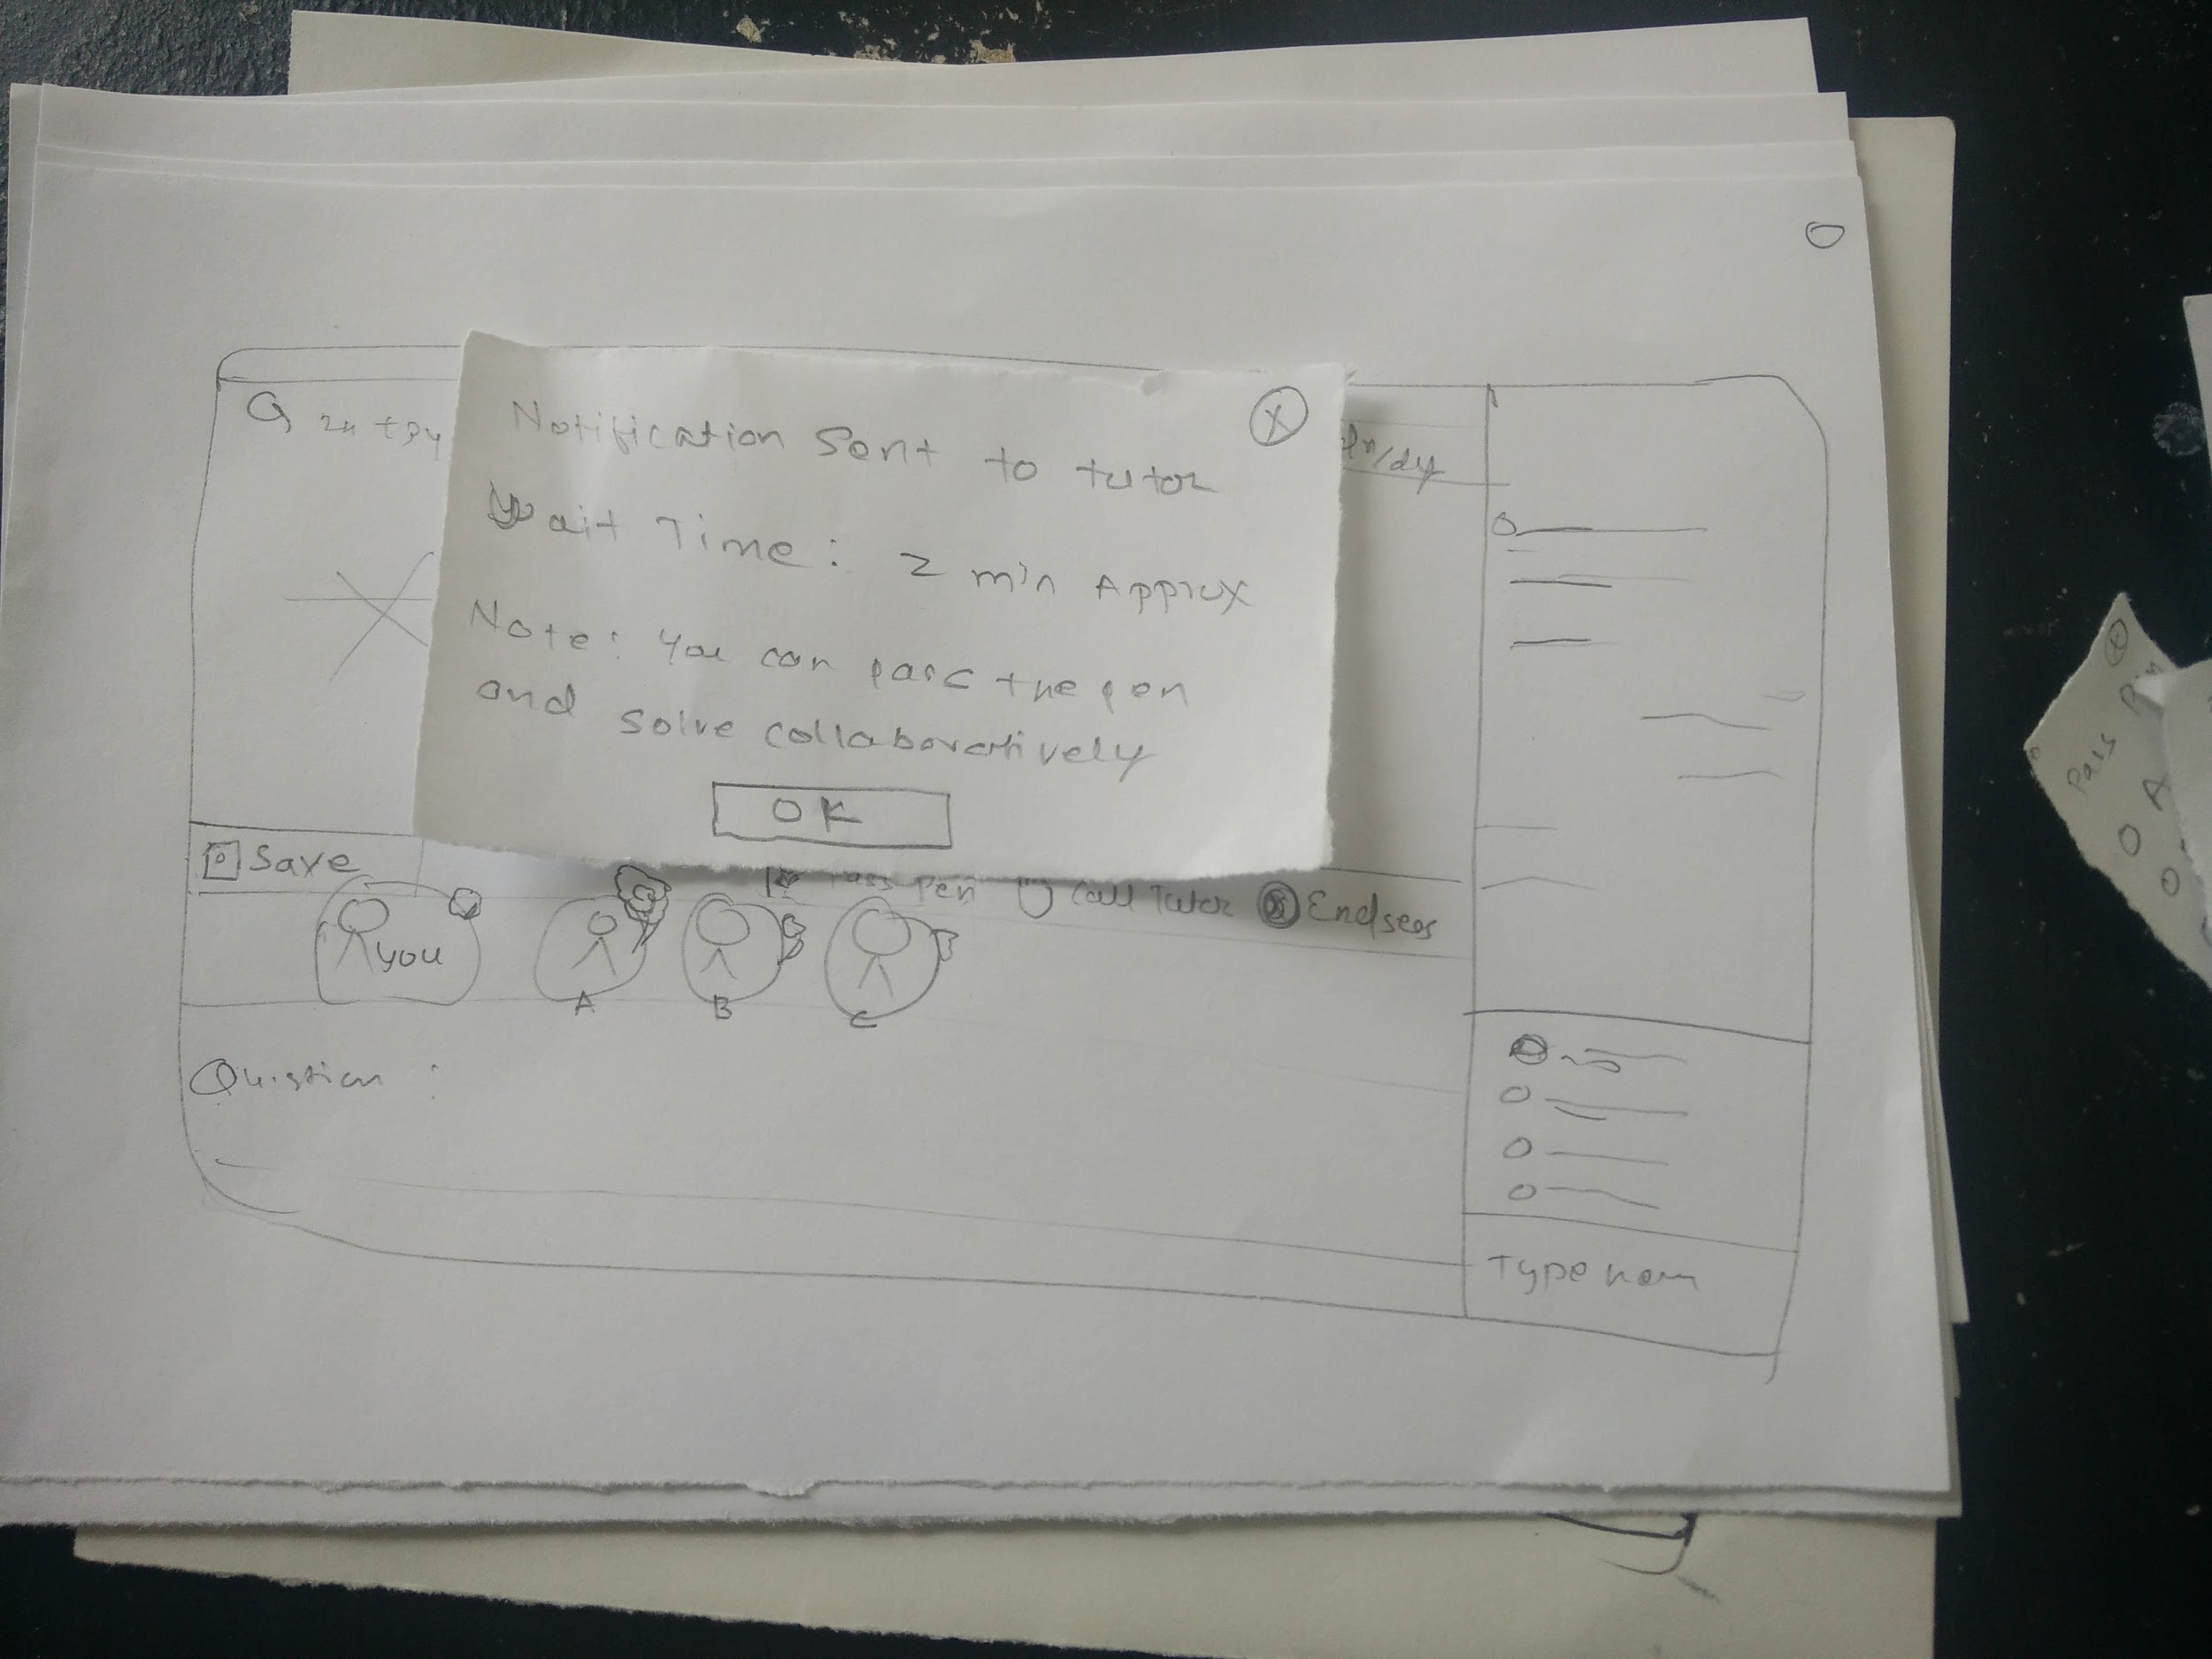 Notification Sent to tutor
Wait Time: 2 min Approx
Note: You can pass the pen
and solve collaboratively
OK
X
Q 2x + 3y
dx/dy
Save
Pass Pen
Call Tutor
End sess
you
A
B
C
Question :
Type
Pass
A